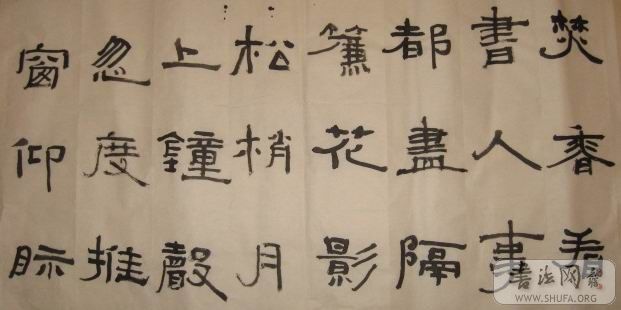 焚香看
書人事
都盡隔
簾花影
松梢月
上鐘聲
忽度推
窗仰眎
書法网
WWW.SHUFA.ORG